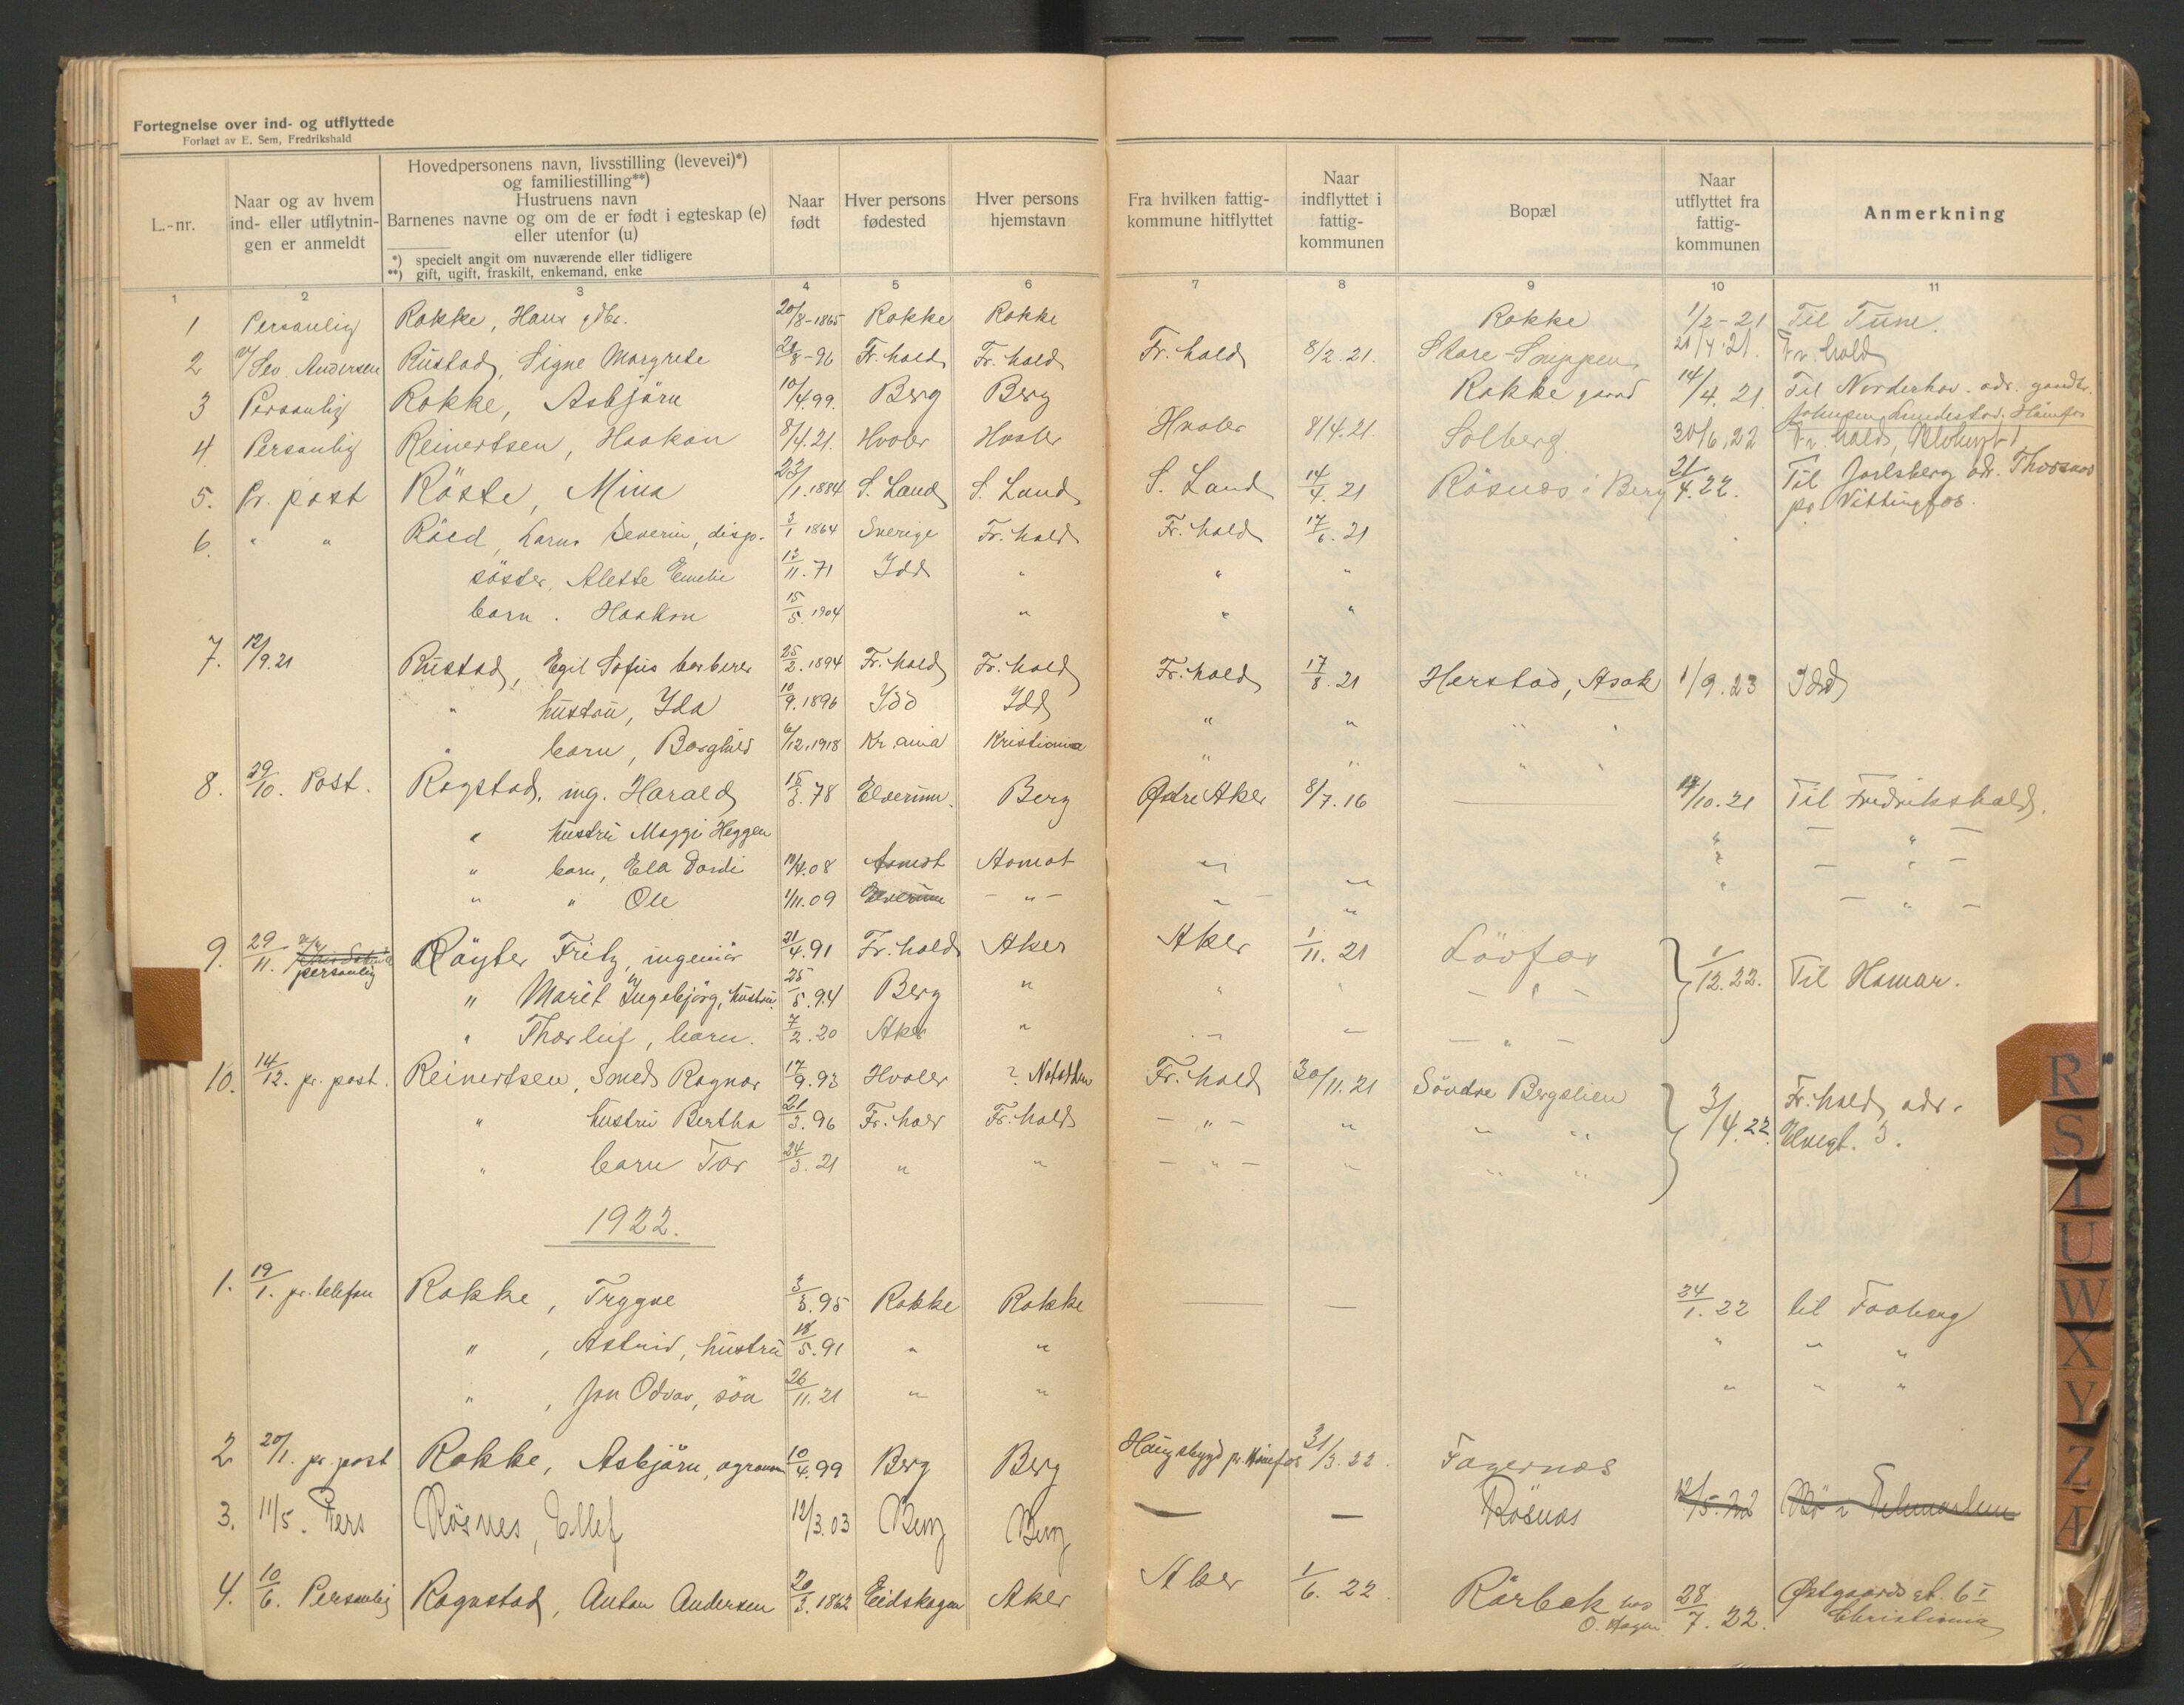 Fortegnelse over ind- og utflyttede
Forlagt av E. Sem, Fredrikshald
L.-nr. Naar og av hvem ind- eller utflytnin-gen er anmeldt Hovedpersonens navn, livsstilling (levevei)*) og familiestilling**) Hustruens navn Barnenes navne og om de er født i egteskap (e) eller utenfor (u) Naar født Hver persons fødested Hver persons hjemstavn Fra hvilken fattig-kommune hitflyttet Naar indflyttet i fattig-kommunen Bopæl Naar utflyttet fra fattig-kommunen Anmerkning
*) specielt angit om nuværende eller tidligere
**) gift, ugift, fraskilt, enkemand, enke
1 2 3 4 5 6 7 8 9 10 11
1 Personlig Rokke, Hans gdbr. 20/8-1865 Rokke Rokke Rokke 1/2-21 Til Tune.
2 Andersen Rustad, Signe Margrete 8-96 Fr.hald Fr.hald Fr.hald 8/2.21. Stare-Snippen 21/4.21. Fr.hald
3 Personlig Rokke, Asbjörn 10/4.99. Berg Berg Rokke gaard 14/4.21 Til Norderhov. adr. gaardbr.
Johnsen Lundestad. Hönefos
4. Personlig Reinertsen, Haakon 8/4.21. Hvaler Hvaler Hvaler 8/4.21. Solberg. 30/6.22 Fr.hald,
5. Pr. post Röste, Mina 23/1.1884 S. Land S. Land S. Land 14/4.21 Rösnæs i Berg 21/4.22. Til Jarlsberg adr.
pr. Vittingfos.
6. " " Röed, Severin, disp. 3/1 1864 Sverige Fr.hald Fr.hald 17/6.21
söster, Alette Emelie 12/11.71 Idd " " "
barn. Haakon 15/5.1904 " " "
7. 12/9.21 Rustad, Egil Sofus barberer 25/2.1894 Fr.hald Fr.hald Fr.hald 17/8.21 Herstad, Asak 1/9.23 Idd
" hustru, Ida 10/9.1896 Idd Idd " " " "
" barn, Borghild 6/12.1918 Kr.ania Kristiania " " " "
8. 29/10. Post. Rogstad, ing. Harald 15/3.78 Elverum. Berg Østre Aker 8/7.16 — 17/10.21 Til Fredrikshald.
" hustru Maggi Heggen " — " —
" barn, Ela Dordi 10/4.08 Aamot Aamot " " " — " —
" " Ole 1/11.09 Elverum — " — " " " — " —
9. 29/11. personlig Röyter Fritz, ingeniör 21/4.91 Fr.hald Aker Aker 1/11.21 Lövfos 1/12.22. Til Hamar.
" Marit Ingebjörg, hustru. 25/5.94 Berg " " " — " —
" Thorleif, barn. 7/2.20 Aker " " — — " —
10. 14/12. pr. post. Reinertsen, Smed Ragnar 17/9.93 Hvaler ? Notodden Fr.hald 30/11.21 Söndre Bergslien 3/4.22. Fr.hald, adr.
" hustru Bertha 21/3.96 Fr.hald Fr.hald — " — " " " Elvegt. 3.
" barn Tor 24/3.21 " " — " — " " "
1922.
1. 19/1. pr. telefon Rokke, Trygve 3/3.95 Rokke Rokke — — 24/1.22 til Faaberg
" , Astrid, hustru 18/5.91 " " " " "
" , Jon Odvar, sön 26/11.21 " " " " "
2 20/1. pr. post Rokke, Asbjörn, agronom 10/4.99 Berg Berg Haugsbygd pr. Hönefos 31/3.22. Fagernæs
3. 11/5. Pers Rösnes, Ellef 12/3.03 Berg Berg — — Rösnæs 12/5.22 Bø i Telemarken
4. 10/6. Personlig Rognstad, Anton Andersen 20/3.1862 Eidskogen Aker Aker 1/6.22. Rörbæk hos 28/7.22. Østgaards gt. 6 I
O. Hagen Christiania
R
S
T
U
W
X
Y
Z
Æ